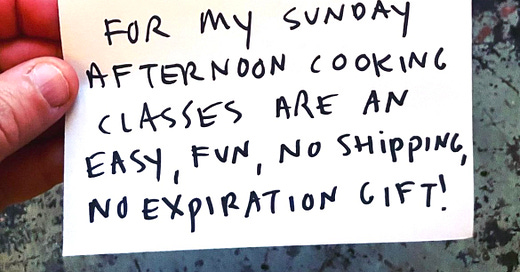 FOR MY SUNDAY
AFTERNOON COOKING
CLASSES ARE AN
EASY, FUN, NO SHIPPING,
NO EXPIRATION GIFT!